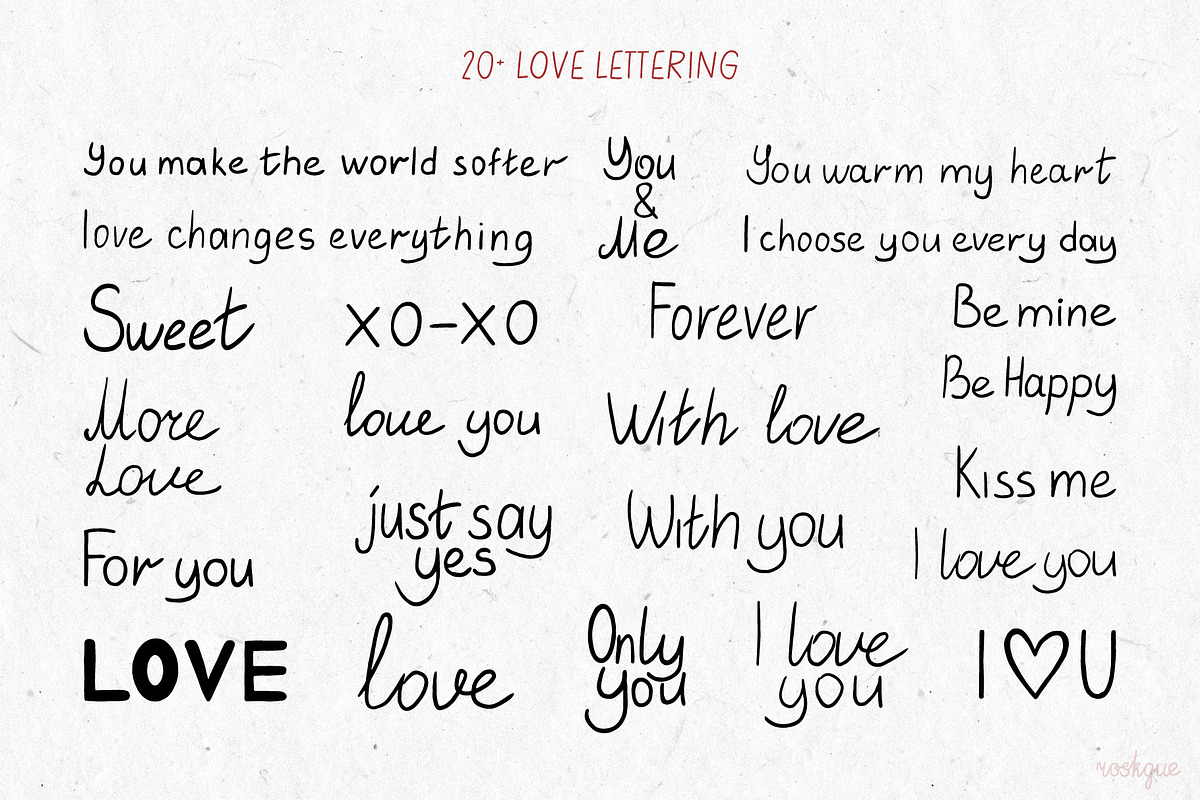 20+ LOVE LETTERING
You make the world softer
You
&
Me
You warm my heart
love changes everything
I choose you every day
Sweet
XO-XO
Forever
Be mine
Be Happy
More
Love
love you
With love
Kiss me
just say
yes
With you
For you
I love you
LOVE
love
Only
you
I love
you
I ♡ U
roskque